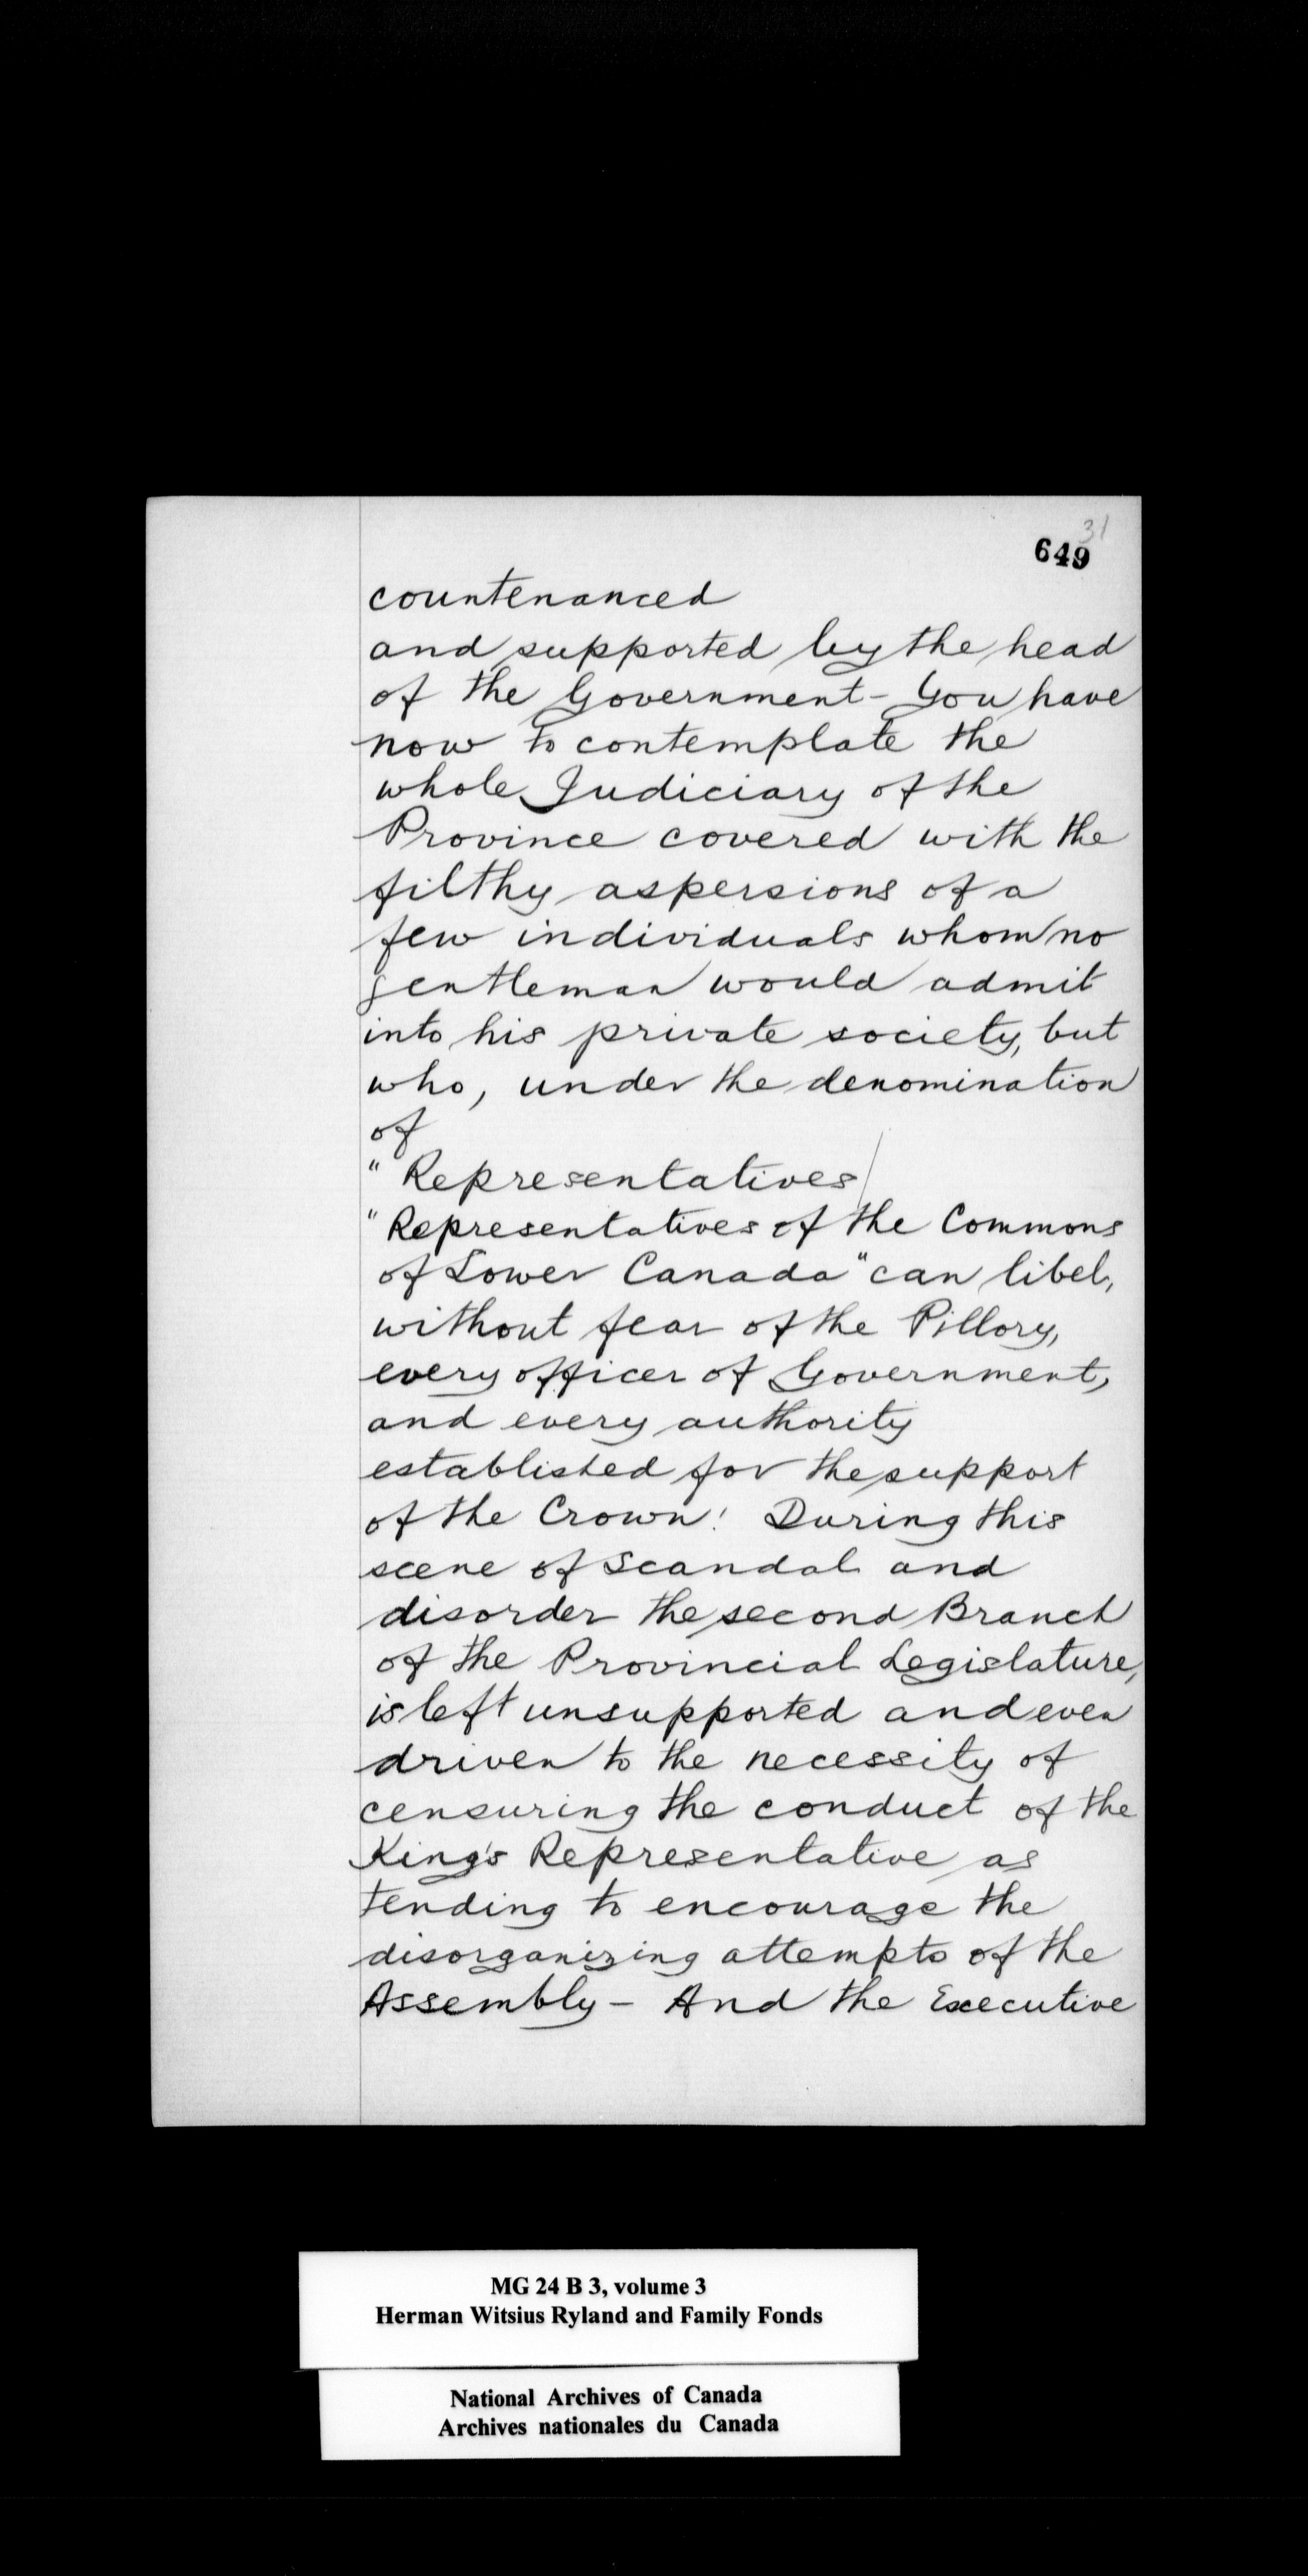 31
649
countenanced
and supported by the head
of the Government - You have
now to contemplate the
whole Judiciary of the
Province covered with the
filthy aspersions of a
few individuals whom no
gentleman would admit
into his private society, but
who, under the denomination
of
" Representatives /
" Representatives of the Commons
of Lower Canada " can libel,
without fear of the Pillory,
every officer of Government,
and every authority
established for the support
of the Crown! During this
scene of scandal and
disorder the second Branch
of the Provincial Legislature,
is left unsupported and even
driven to the necessity of
censuring the conduct of the
King's Representative as
tending to encourage the
disorganizing attempts of the
Assembly - And the Executive
MG 24 B 3, volume 3
Herman Witsius Ryland and Family Fonds
National Archives of Canada
Archives nationales du Canada